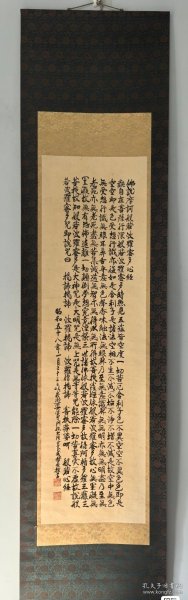 佛説摩訶般若波羅蜜多心經
觀自在菩薩行深般若波羅蜜多時照見五蘊皆空度一切苦厄舍利子色不異空空不異色色即是
空空即是色受想行識亦復如是舍利子是諸法空相不生不滅不垢不淨不增不減是故空中無色
無受想行識無眼耳鼻舌身意無色聲香味觸法無眼界乃至無意識界無無明亦無無明盡乃至
無老死亦無老死盡無苦集滅道無智亦無得以無所得故菩提薩埵依般若波羅蜜多故心無罣礙無
罣礙故無有恐怖遠離一切顛倒夢想究竟涅槃三世諸佛依般若波羅蜜多故得阿耨多羅三藐三
菩提故知般若波羅蜜多是大神呪是大明呪是無上呪是無等等呪能除一切苦真實不虛故説般
若波羅蜜多呪即説呪曰 揭諦揭諦 波羅揭諦 波羅僧揭諦 菩提薩婆訶 般若心經
昭和五十八年十一月
孔夫子旧书网